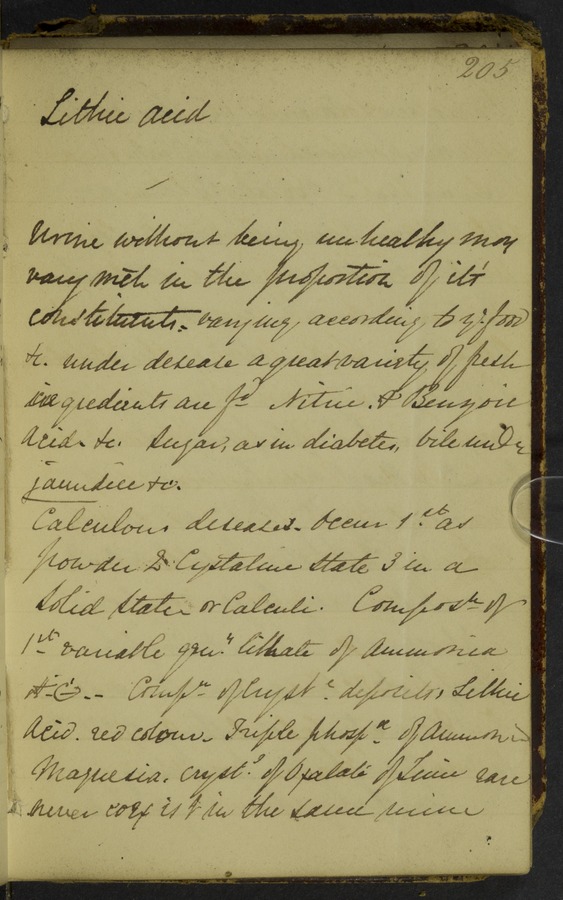 205
Lithic acid
Urine without being unhealthy may
vary much in the proportion of it's
constituents - varying according to ye food
&c. under desease a great variety of fresh
ingredients are fd Nitric & Benzoic
Acid &c. Sugar, as in diabetes, bile under
jaundice &c.
Calculous deseases. Occur 1st as
powder 2 Cystaline state 3 in a
Solid state or Calculi. Composn of
1st variable genll lithate of Ammonia
Compn of cryste deposits Lithic
Acid. red colour. Triple phospe of Ammonia
Magnesia. crysts of Oxalate of Lime rare
never coexist in the same urine